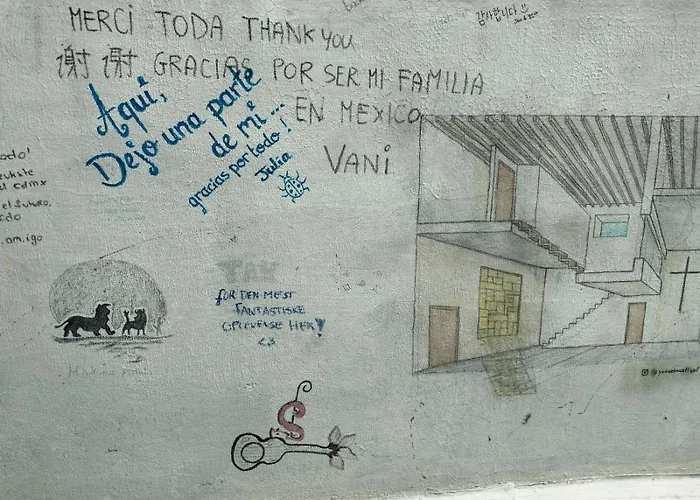 감사합니다
MERCI TODA THANK YOU
谢 谢 GRACIAS POR SER MI FAMILIA
EN MEXICO
VANI
Aqui,
Dejo una parte
de mi...
gracias por todo!
Julia
el futuro.
amigo
TAK
FOR DEN MEST
FANTASTISKE
OPLEVELSE HER!
<3